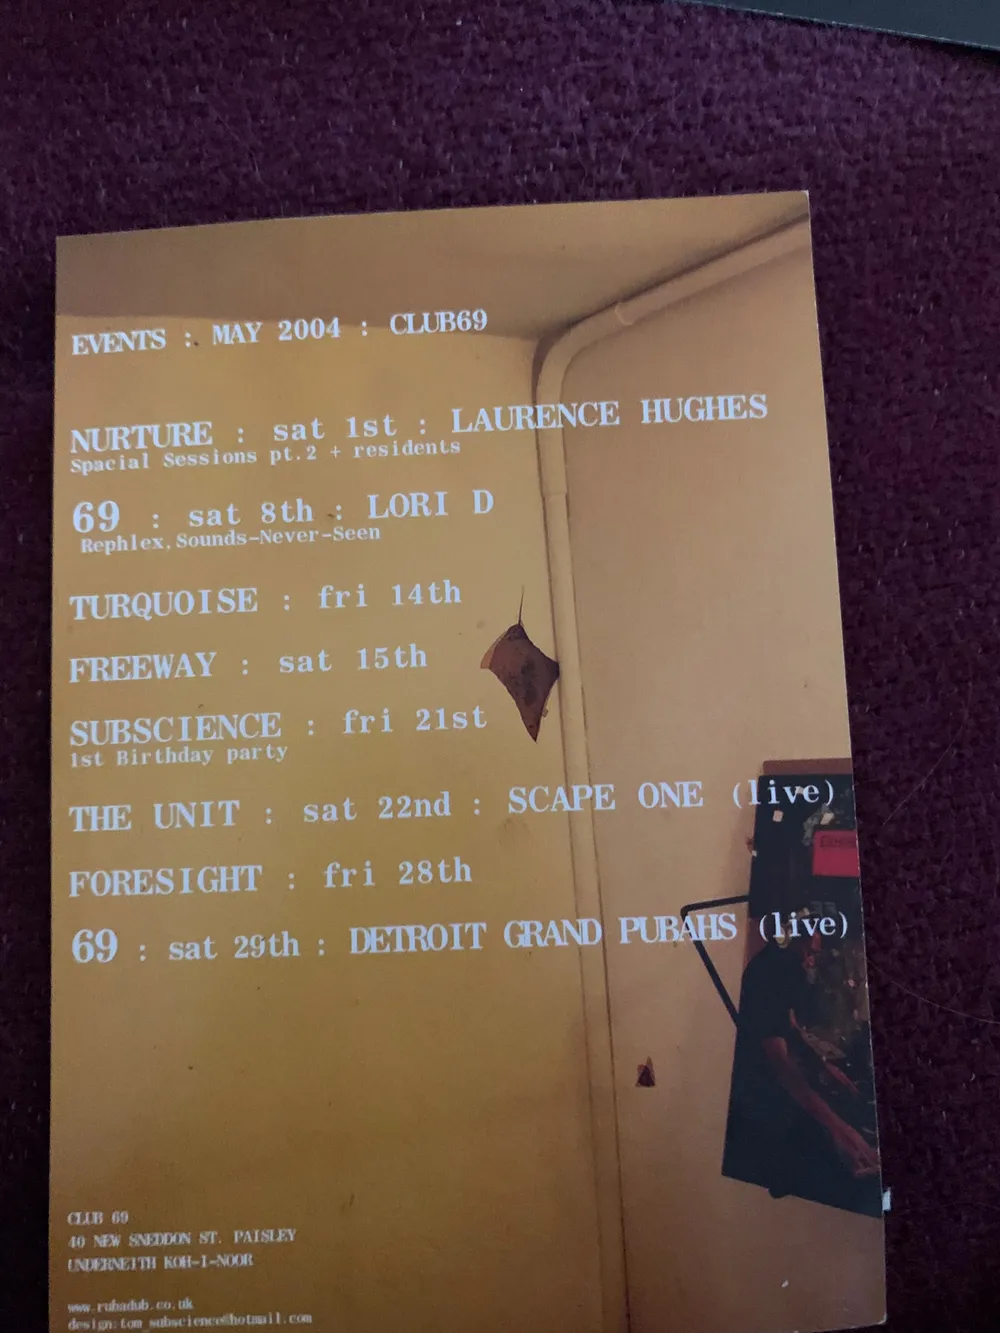 EVENTS : MAY 2004 : CLUB69
NURTURE : sat 1st : LAURENCE HUGHES
Spacial Sessions pt.2 + residents
69 : sat 8th : LORI D
Rephlex,Sounds-Never-Seen
TURQUOISE : fri 14th
FREEWAY : sat 15th
SUBSCIENCE : fri 21st
1st Birthday party
THE UNIT : sat 22nd : SCAPE ONE (live)
FORESIGHT : fri 28th
69 : sat 29th : DETROIT GRAND PUBAHS (live)
CLUB 69
40 NEW SNEDDON ST. PAISLEY
UNDERNEITH KOH-I-NOOR
www.rubadub.co.uk
design:tom_subscience@hotmail.com